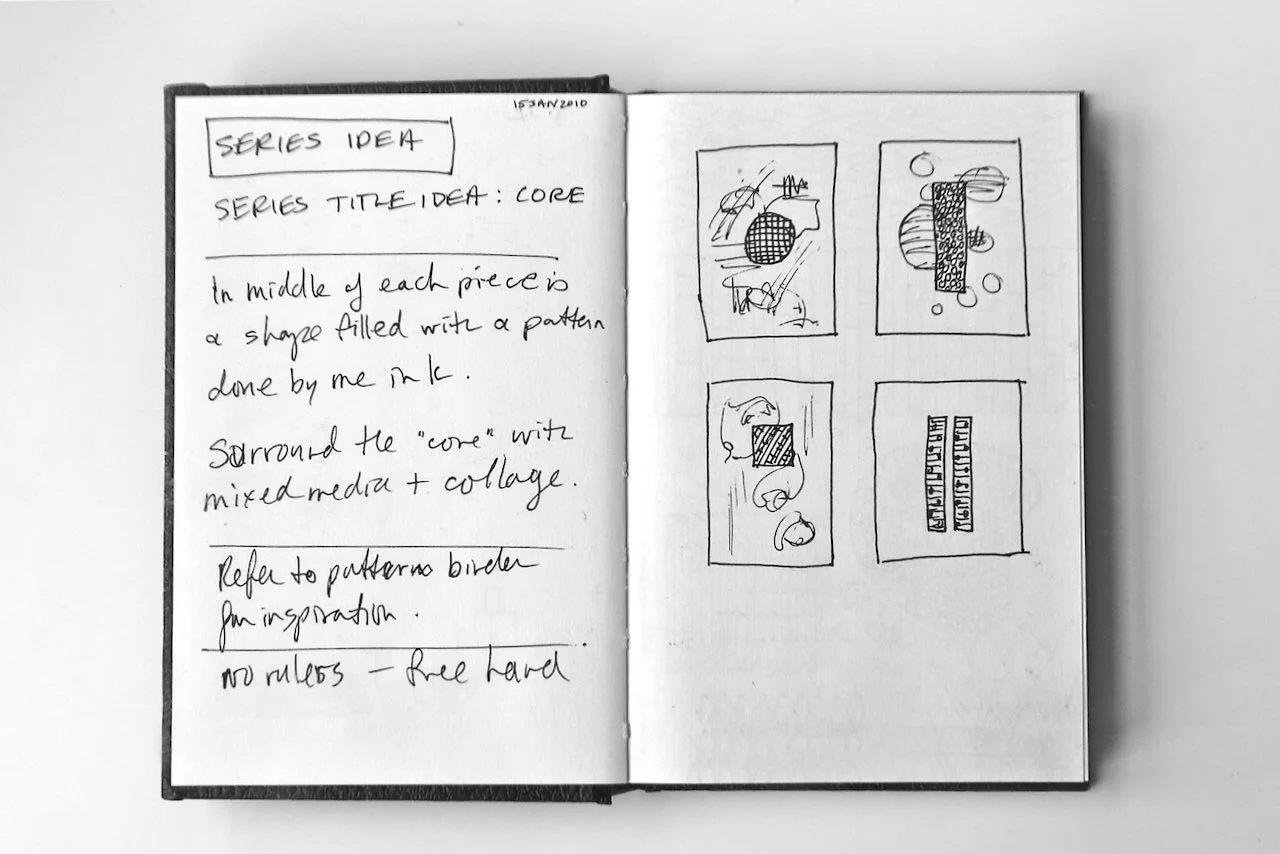 15 JAN 2010
SERIES IDEA
SERIES TITLE IDEA: CORE
In middle of each piece is
a shape filled with a pattern
done by me in ink.
Surround the "core" with
mixed media + collage.
Refer to patterns binder
for inspiration.
no rulers — free hand